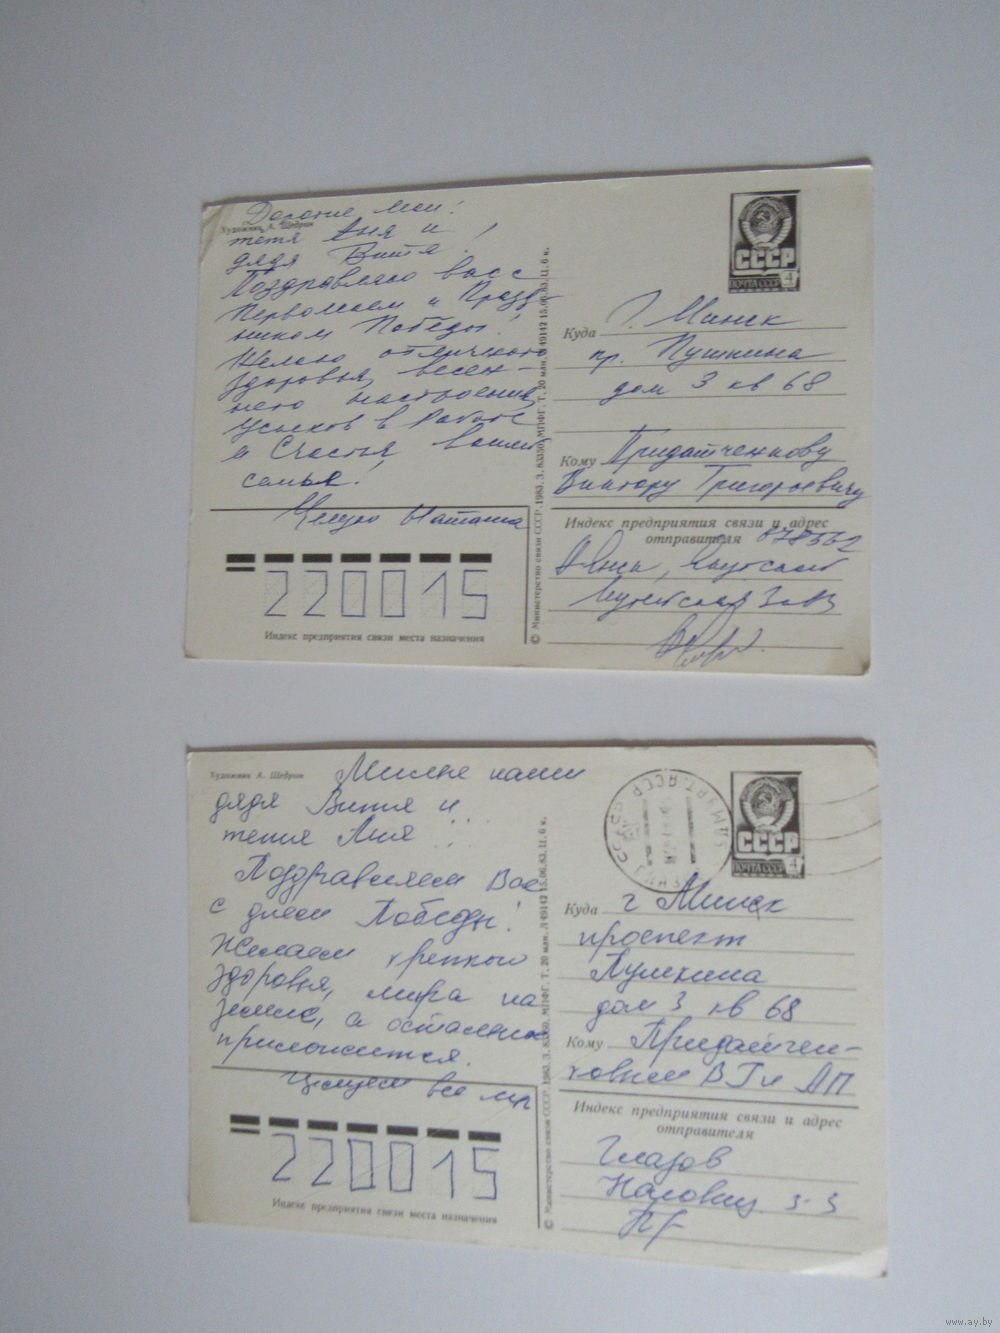 Художник А. Щедрин
Дорогие мои!
тетя Аня и
дядя Витя!
Поздравляю вас с
Первомаем и Празд-
ником Победы!
Желаю отличного
здоровья, весен-
него настроения,
успехов в работе
и счастья вашей
семье!
Целую Наташа
220015
Индекс предприятия связи места назначения
© Министерство связи СССР, 1983. З. 83350. МПФГ. Т. 20 млн. Л 49142 15.06.83. Ц. 6 к.
СССР
ПОЧТА СССР 4
Куда г. Минск
пр. Пушкина
дом 3 кв 68
Кому Придатченкову
Виктору Григорьевичу
Индекс предприятия связи и адрес
отправителя
Художник А. Щедрин
Милые наши
дядя Витя и
тетя Аня...
Поздравляем Вас
с днем Победы!
Желаем крепкого
здоровья, мира на
земле, а остальное
приложится.
Целуем все мы
220015
Индекс предприятия связи места назначения
© Министерство связи СССР, 1983. З. 83350. МПФГ. Т. 20 млн. Л 49142 15.06.83. Ц. 6 к.
СССР
ПОЧТА СССР 4
Куда г Минск
проспект
Пушкина
дом 3 кв 68
Кому Придатчен-
ковым ВГ и АП
Индекс предприятия связи и адрес
отправителя
Глазов
3-3
www.ay.by